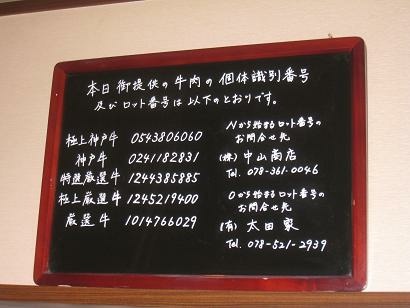 本日御提供の牛肉の個体識別番号
及びロット番号は以下のとおりです。
極上神戸牛 0543806060
神戸牛 0241182831
特選厳選牛 1244385885
極上厳選牛 1245219400
厳選牛 1014766029
Nから始まるロット番号の
お問合せ先
(株)中山商店
Tel. 078-361-0046
0から始まるロット番号の
お問合せ先
(有)太田家
Tel. 078-521-2939